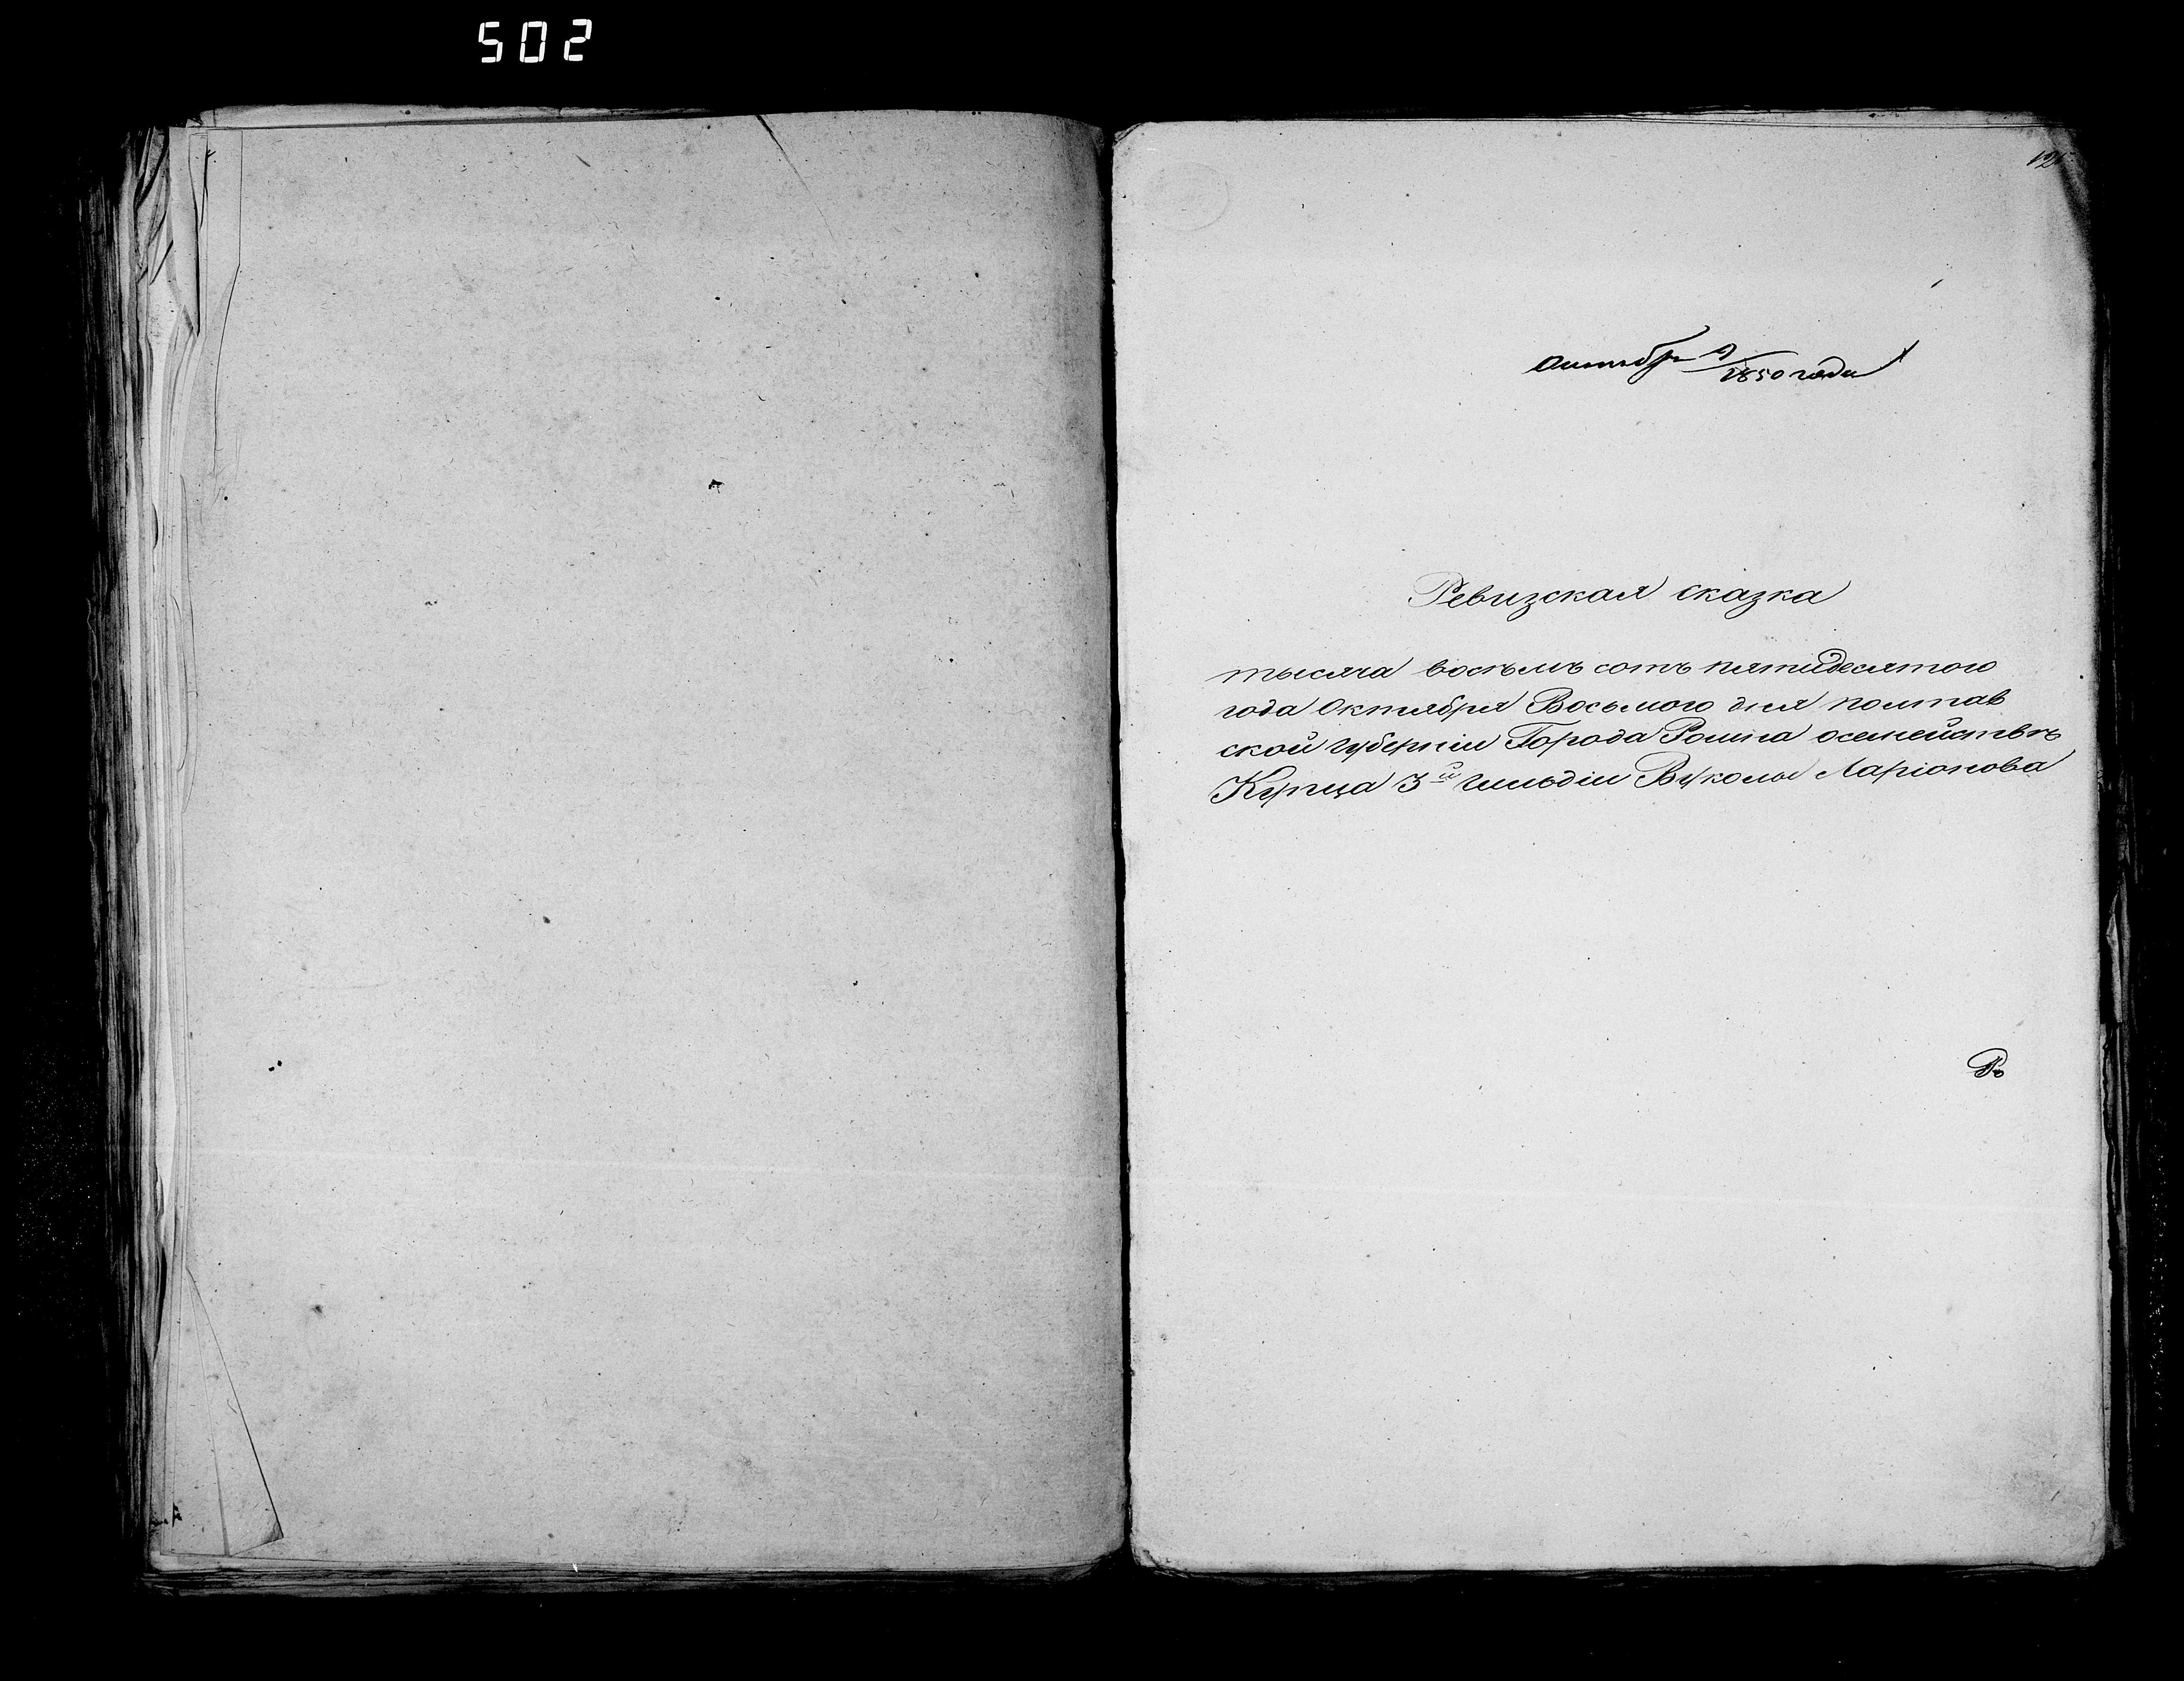 502
125
Октябр 9/1850 года
Ревизская сказка
тысяча восъемъ сотъ пятидесятого
года Октября Восьмого дня полтав
ской губерніи Города Ромна осемействѣ
Купца 3й гильдіи Вуколы Ларіонова
Ро